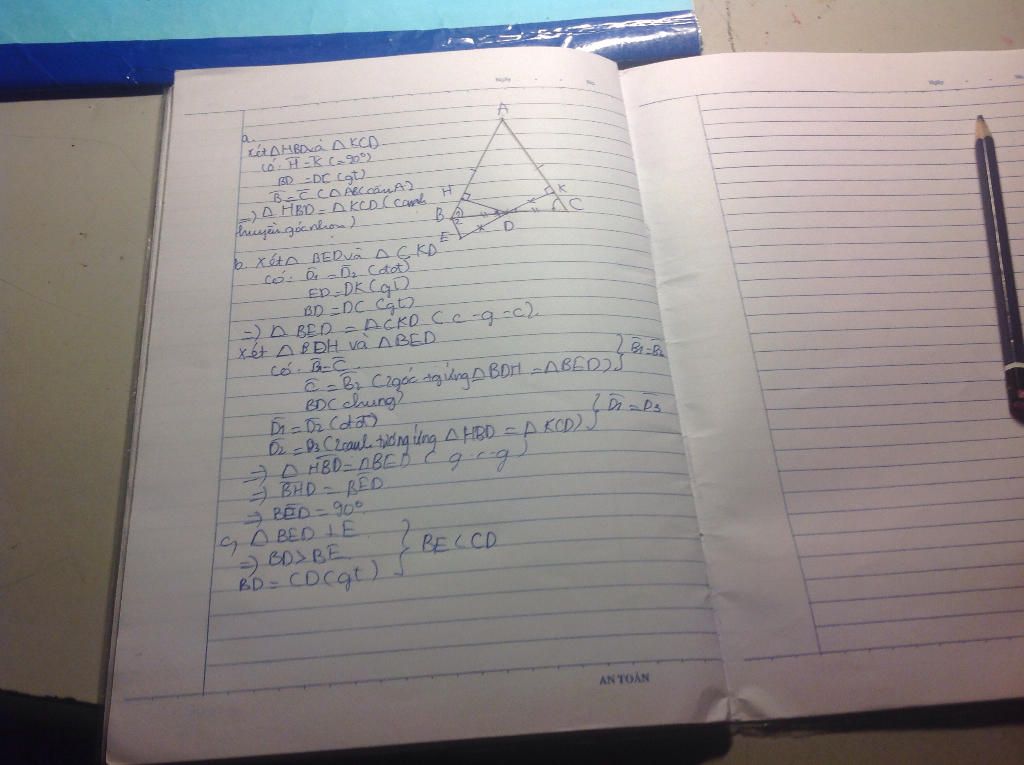 Ngày
No
Ngày
No
A
H
K
B
2
C
E
D
a.
Xét △HBD và △KCD
có: H = K (= 90°)
BD = DC (gt)
B = C (△ABC cân A)
=) △HBD = △KCD (canh
huyền góc nhọn)
b. Xét △ BED và △ CKD
có: D1 = D2 (đđ)
ED = DK (gt)
BD = DC (gt)
=) △ BED = △CKD (c-g-c).
Xét △ BDH và △BED
có: B1 = C
C = B2 (2góc tg ứng △BDH = △BED) } B1 = B2
BD (chung)
D1 = D2 (đđ)
D2 = D3 (2canh tương ứng △HBD = △KCD) } D1 = D3
=) △ HBD = △BED (g-c-g)
=) BHD = BED
=) BED = 90°
c, △ BED ⊥ E
=) BD > BE
BD = CD (gt) } BE < CD
AN TOÀN